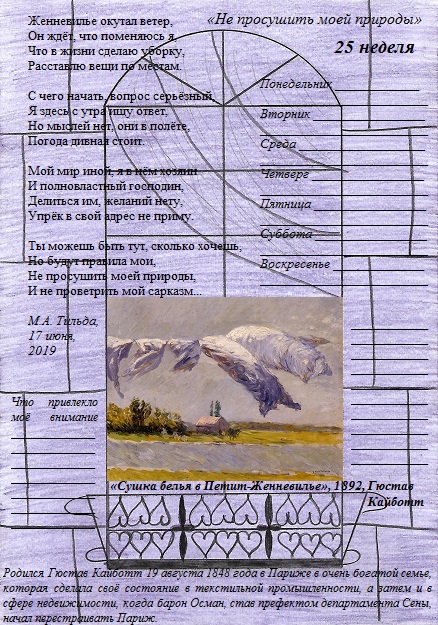 «Не просушить моей природы»
25 неделя
Женневилье окутал ветер,
Он ждёт, что поменяюсь я,
Что в жизни сделаю уборку,
Расставлю вещи по местам.
С чего начать, вопрос серьёзный,
Я здесь с утра ищу ответ,
Но мыслей нет, они в полёте,
Погода дивная стоит.
Мой мир иной, я в нём хозяин
И полновластный господин,
Делиться им, желаний нету,
Упрёк в свой адрес не приму.
Ты можешь быть тут, сколько хочешь,
Но будут правила мои,
Не просушить моей природы,
И не проветрить мой сарказм...
М.А. Тильда,
17 июня,
2019
Понедельник
Вторник
Среда
Четверг
Пятница
Суббота
Воскресенье
Что привлекло
моё внимание
«Сушка белья в Петит-Женневилье», 1892, Гюстав
Кайботт
Родился Гюстав Кайботт 19 августа 1848 года в Париже в очень богатой семье,
которая сделала своё состояние в текстильной промышленности, а затем и в
сфере недвижимости, когда барон Осман, став префектом департамента Сены,
начал перестраивать Париж.